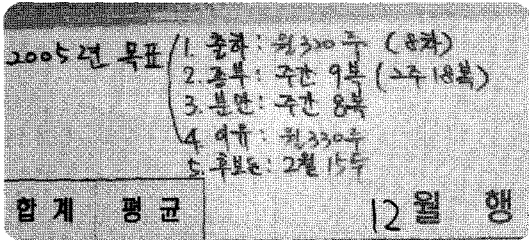 2005년 목표
1. 출하 : 월 320두 (8회)
2. 종부 : 주간 9복 (2주 18복)
3. 분만 : 주간 8복
4. 이유 : 월 330두
5. 후보돈 : 2월 15두
합계 평균
12월 행